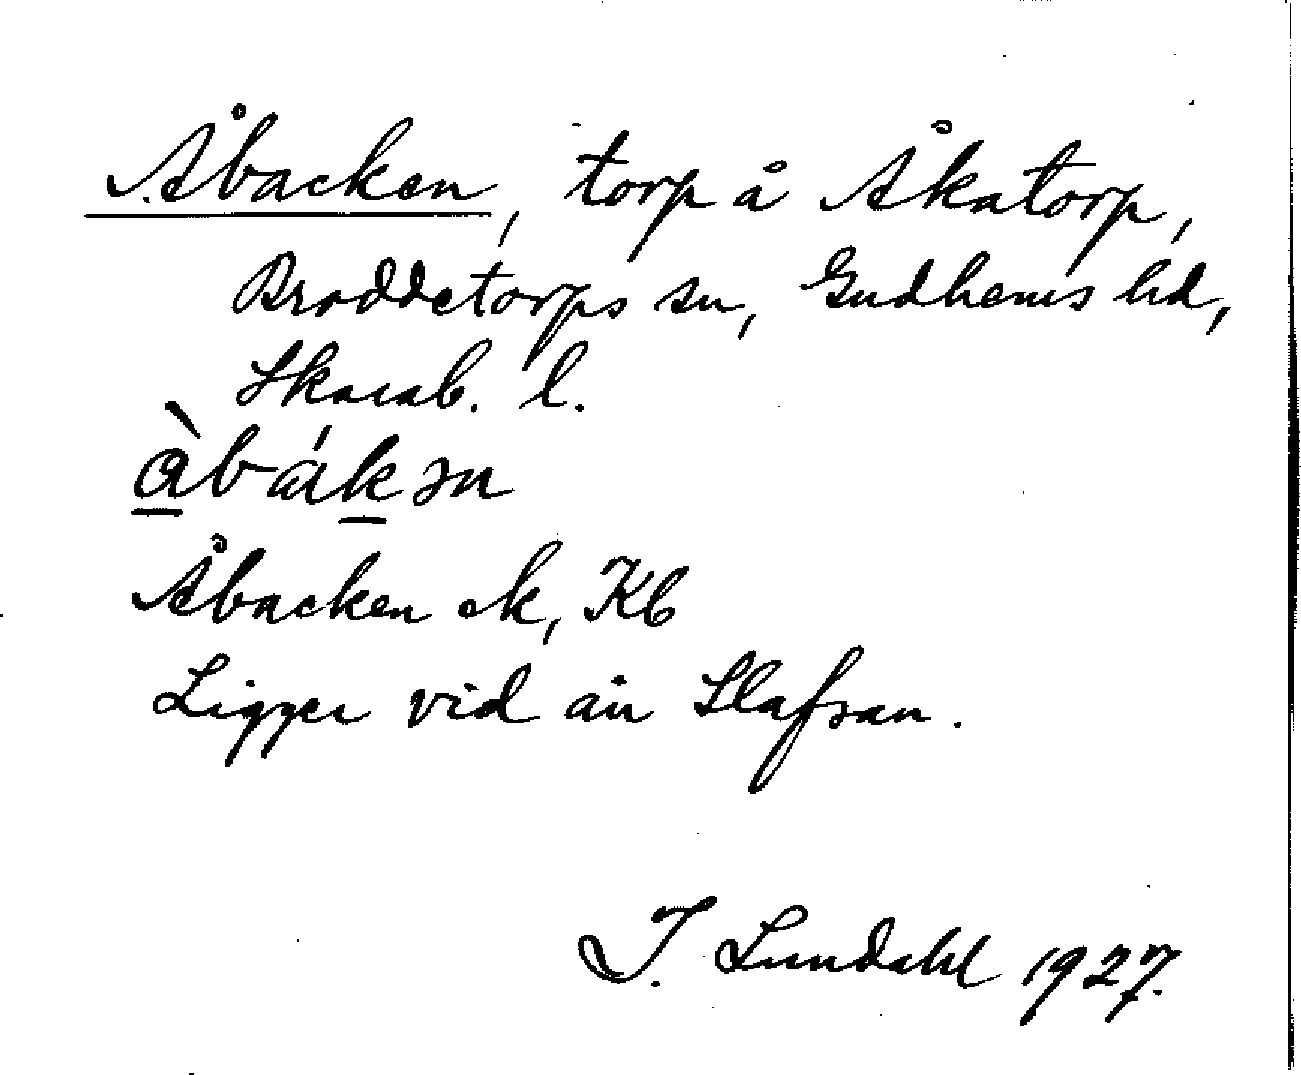 Åbacken, torp å Åkatorp,
Broddetorps sn, Gudhems hd,
Skarab. l.
å̀bák ən
Åbacken ek, Kb
Ligger vid ån Slafsan.
I. Lundahl 1927.